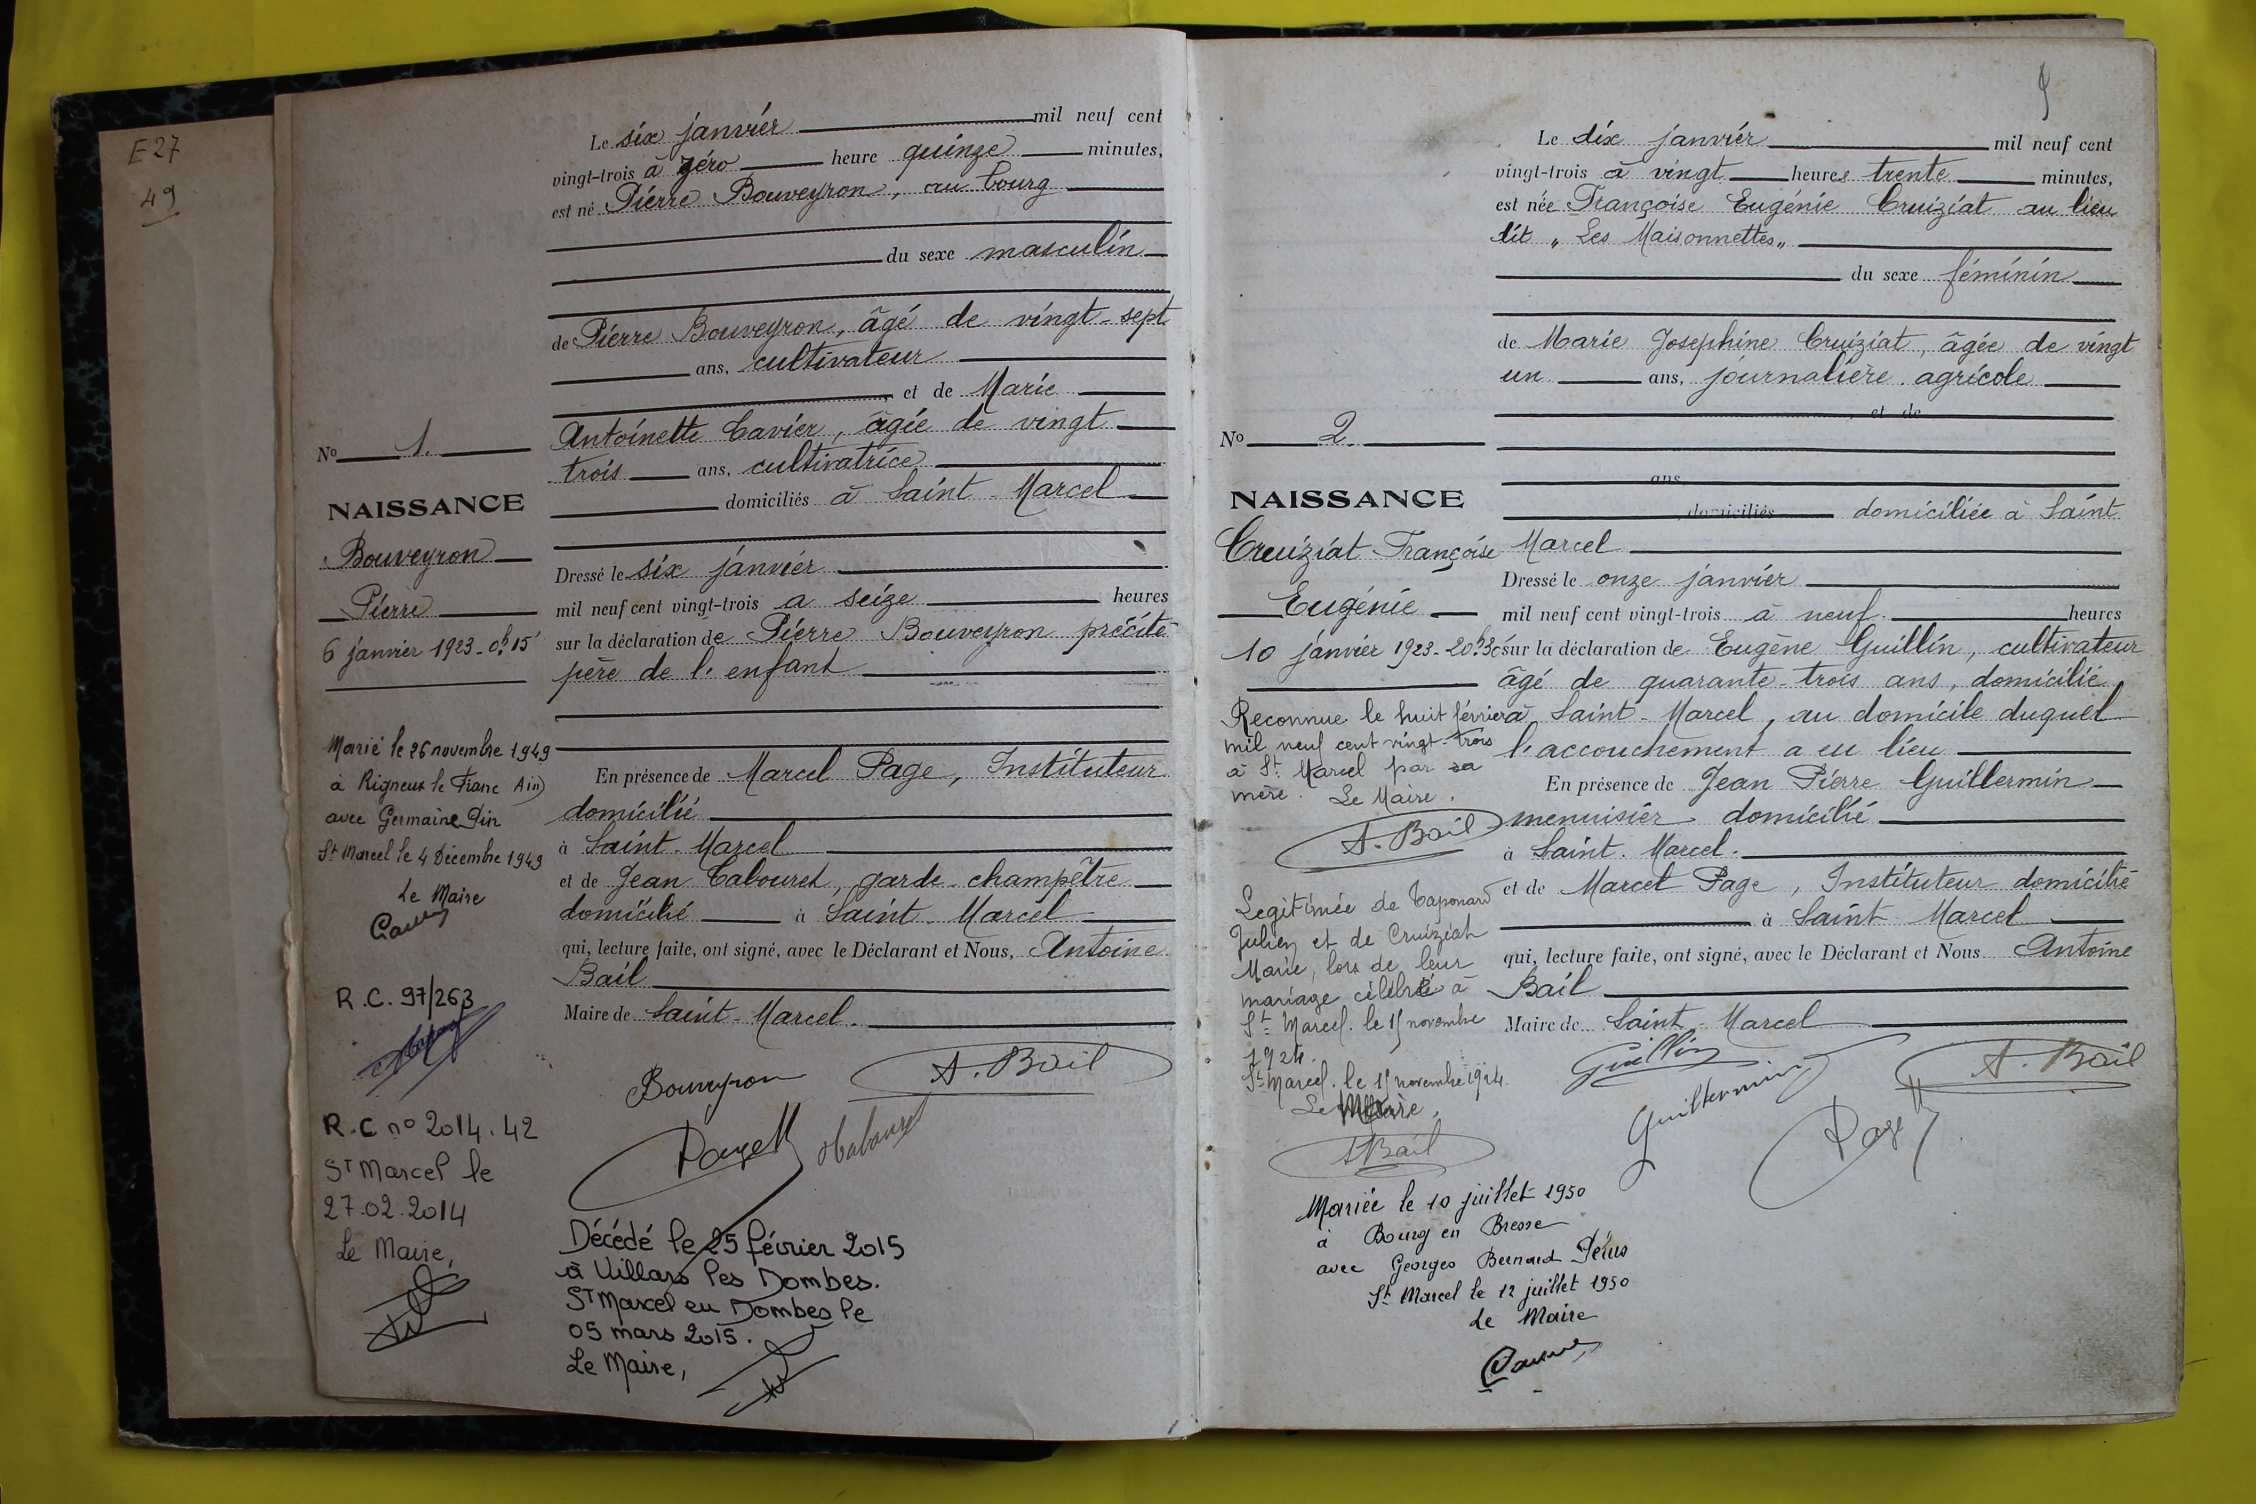 E27
49
Le six janvier mil neuf cent
vingt-trois à zéro heure quinze minutes,
est né Pierre Bouveyron, au bourg
du sexe masculin
de Pierre Bouveyron, âgé de vingt-sept
ans, cultivateur
, et de Marie
Antoinette Cavier, âgée de vingt
trois ans, cultivatrice
domiciliés à Saint-Marcel
Dressé le six janvier
mil neuf cent vingt-trois a seize heures
sur la déclaration de Pierre Bouveyron précité
père de l'enfant
En présence de Marcel Page, Instituteur
domicilié
à Saint-Marcel
et de Jean Tabouret, garde-champêtre
domicilié à Saint-Marcel
qui, lecture faite, ont signé, avec le Déclarant et Nous, Antoine
Bail
Maire de Saint-Marcel.
Bouveyron
A. Bail
Page M
Tabouret
Décédé le 25 février 2015
à Villars les Dombes.
St Marcel en Dombes le
05 mars 2015.
Le Maire,
No 1.
NAISSANCE
Bouveyron
Pierre
6 janvier 1923-0h.15'
Marié le 26 novembre 1949
à Rigneux le Franc Ain)
avec Germaine Pin
St Marcel le 4 Décembre 1949
Le Maire
R.C. 97/263
R.C no 2014.42
St Marcel le
27.02.2014
Le Maire,
Le dix janvier mil neuf cent
vingt-trois à vingt heures trente minutes,
est née Françoise Eugénie Cruiziat au lieu
dit „ Les Maisonnettes„
du sexe féminin
de Marie Josephine Cruiziat, âgée de vingt
un ans, journalière agricole
, et de
ans
domiciliés domiciliée à Saint
Marcel
Dressé le onze janvier
mil neuf cent vingt-trois à neuf heures
sur la déclaration de Eugène Guillin, cultivateur
âgé de quarante-trois ans, domicilié
à Saint-Marcel, au domicile duquel
l'accouchement a eu lieu
En présence de Jean Pierre Guillermin
menuisier domicilié
à Saint-Marcel.
et de Marcel Page, Instituteur domicilié
à Saint Marcel
qui, lecture faite, ont signé, avec le Déclarant et Nous Antoine
Bail
Maire de Saint-Marcel
Guillin
Guillermin
A. Bail
Page M
No 2
NAISSANCE
Cruiziat Françoise
Eugénie
10 janvier 1923-20h.30
Reconnue le huit février
mil neuf cent vingt-trois
à St. Marcel par sa
mère. Le Maire.
A. Bail
Legitimée de Taponard
Julien et de Cruiziat
Marie, lors de leur
mariage célébré à
St Marcel. le 15 novembre
1924.
St Marcel. le 15 novembre 1924.
Le Maire.
A Bail
Mariée le 10 juillet 1950
à Bourg en Bresse
avec Georges Bernard
St Marcel le 12 juillet 1950
Le Maire